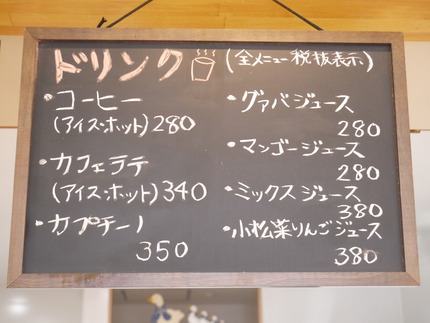 ドリンク (全メニュー税抜表示)
・コーヒー
(アイス・ホット) 280
・カフェラテ
(アイス・ホット) 340
・カプチーノ
350
・グァバジュース
280
・マンゴージュース
280
・ミックスジュース
380
・小松菜りんごジュース
380